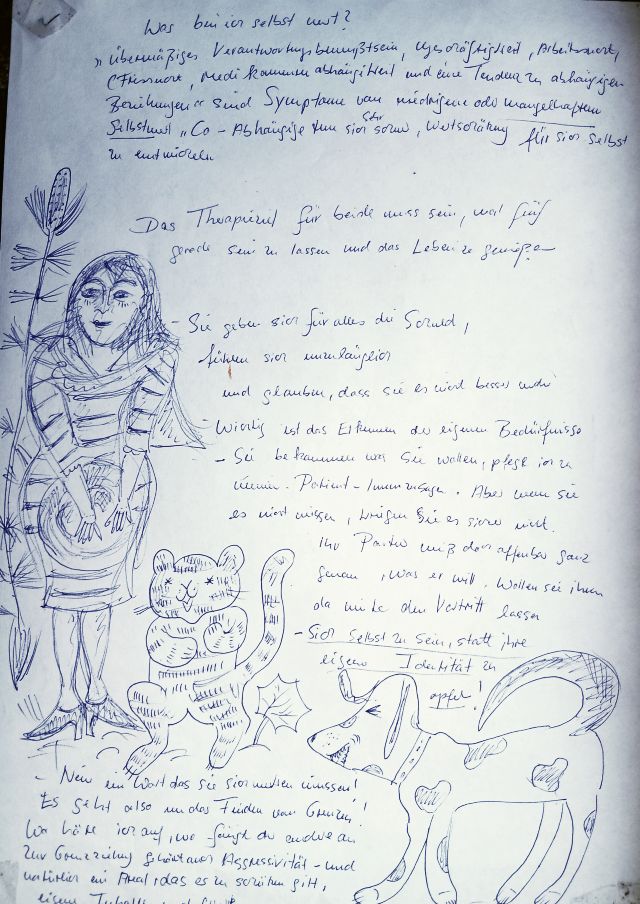 Was bin ich selbst wert?
"übermäßiges Verantwortungsbewußtsein, Arbeitssucht,
und eine Tendenz zu abhängigen
Beziehungen" sind Symptome von niedrigem oder mangelhaftem
Selbstwert "Co-Abhängige tun sich sehr schwer, Wertschätzung für sich selbst
zu entwickeln
Das Therapieziel für beide muss sein, mal fünf
gerade sein zu lassen und das Leben zu genießen
- Sie geben sich für alles die Schuld,
fühlen sich unzulänglich
und glauben, dass sie es nicht besser
- Wichtig ist das Erkennen der eigenen Bedürfnisse
- Sie bekommen was Sie wollen, pflege ich zu
Patient zusagen. Aber wenn sie
es nicht wissen, kriegen Sie es sicher nicht.
Ihr Partner weiß doch offenbar ganz
genau, was er will. Wollen sie ihm
da den Vortritt lassen
- Sich selbst zu sein, statt ihre
eigene Identität zu
opfern!
- Nein ein Wort das sie sich merken müssen!
Es geht also um das Finden von Grenzen!
Wo höre ich auf, wo fängt der andere an
Zur Grenzziehung gehört auch Aggressivität - und
natürlich ein Areal, das es zu schützen gilt,